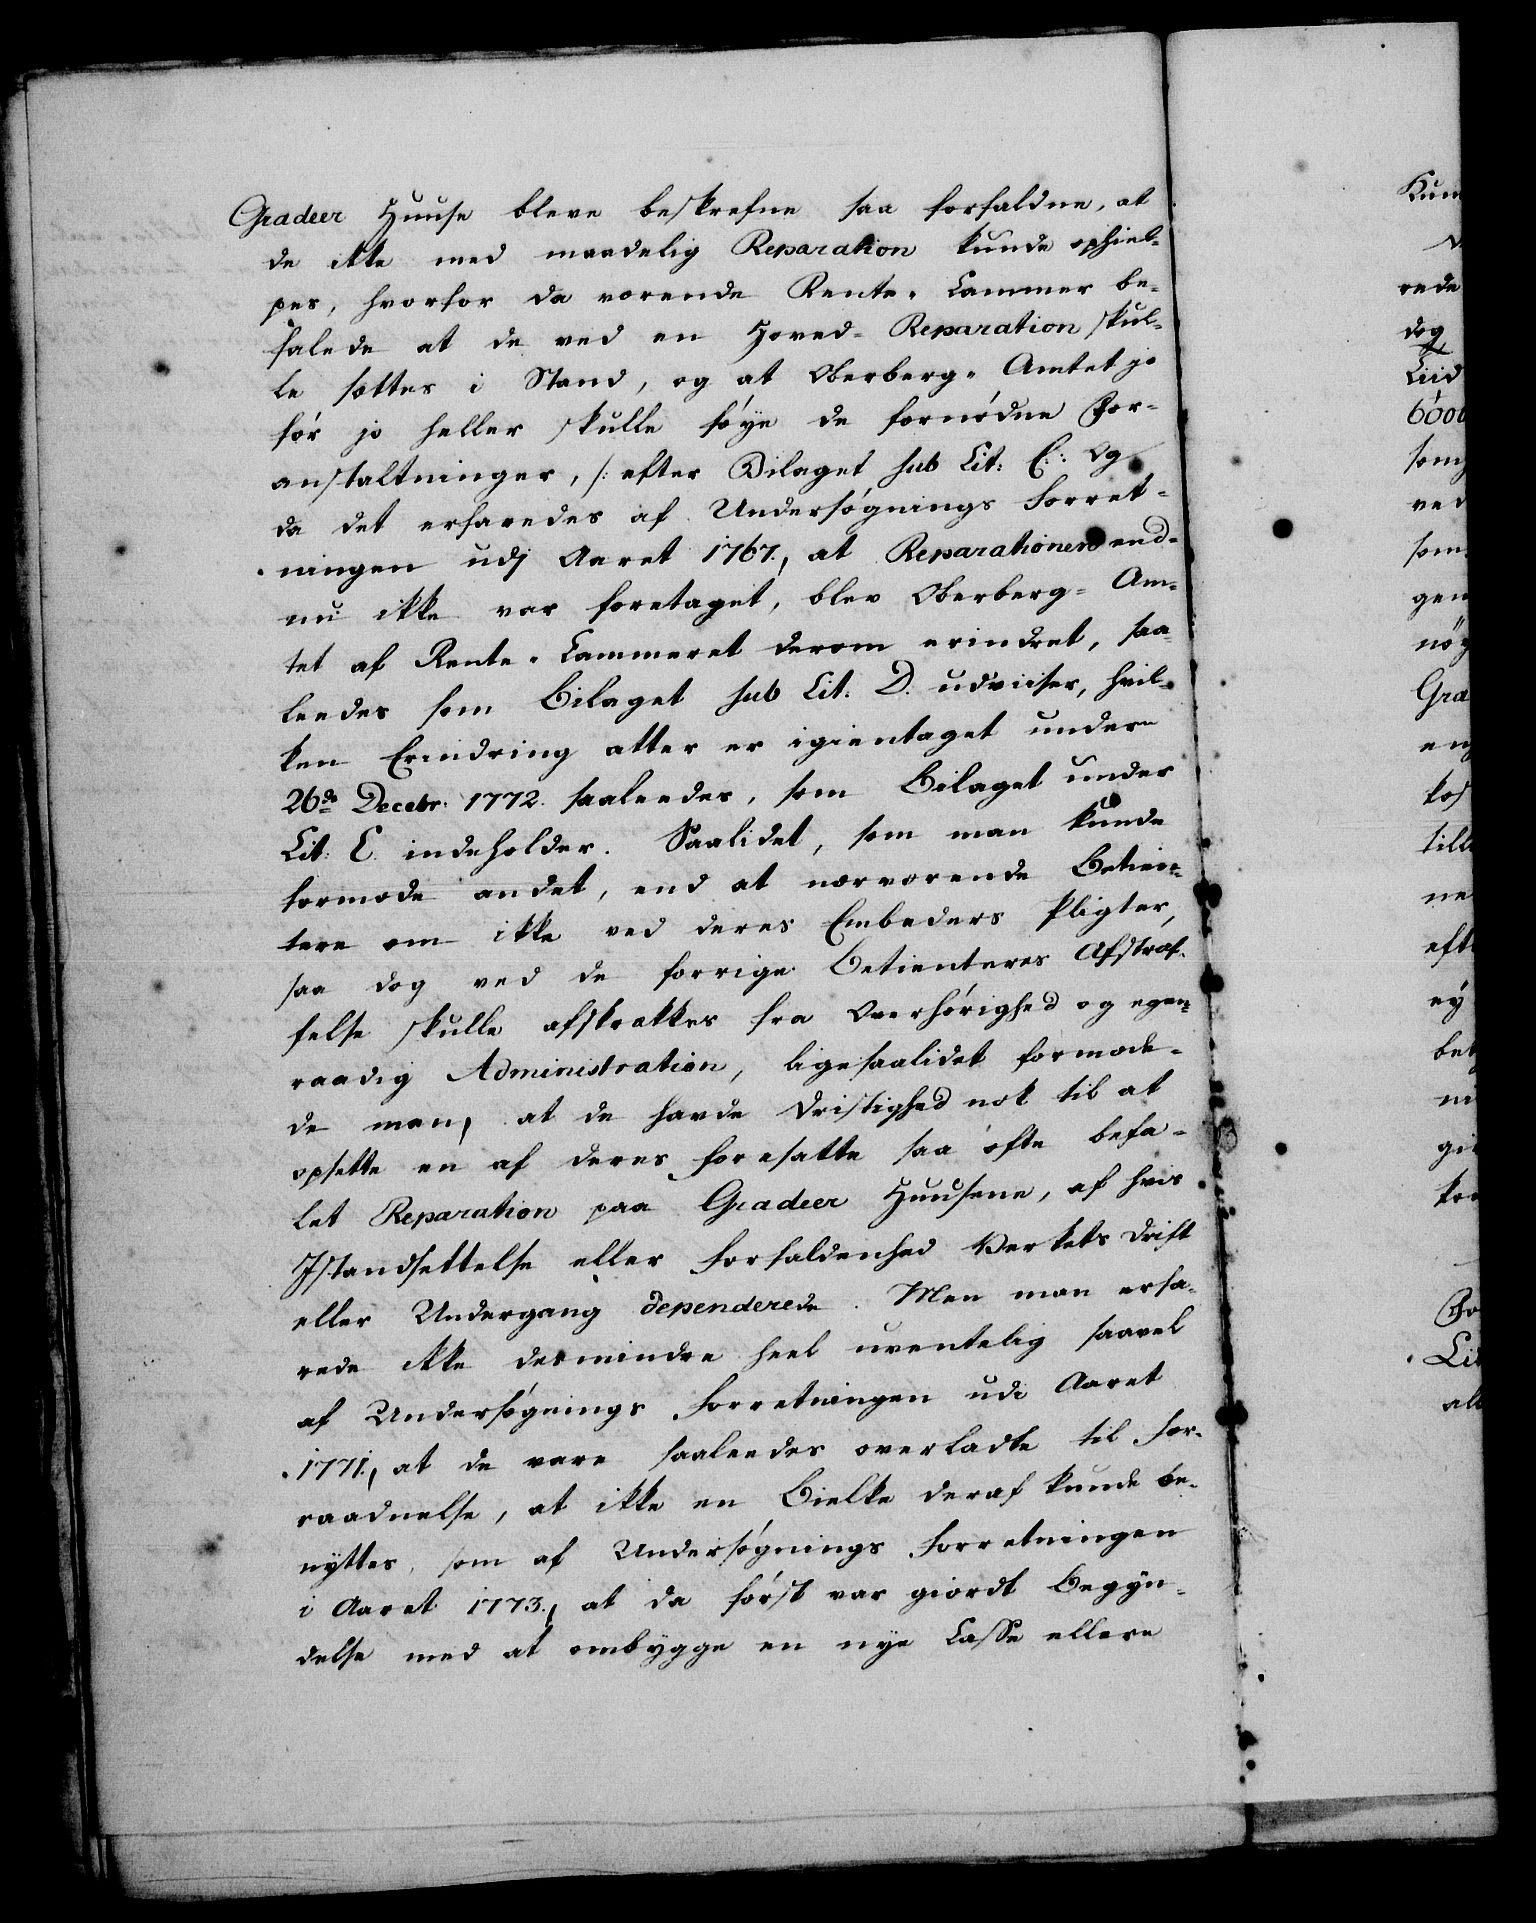 Gradeer Huuse bleve beskrefne saa forfaldne, at
de ikke med maadelig Reparation kunde ophiel-
pes, hvorfor daværende Rente-Cammer be-
falede at de ved en Hoved-Reparation skul-
le sættes i Stand, og at Oberberg-Amtet jo
før jo heller skulle føye de fornødne For-
anstaltninger, /: efter Bilaget sub Lit: C: :/ og
da det erfaredes af Undersøgnings Forret-
ningen udj Aaret 1767., at Reparationen end-
nu ikke var foretaget, blev Oberberg-Am-
tet af Rente-Cammeret derom erindret, saa-
leedes som Bilaget sub Lit: D. udviiser, hvil-
ken Erindring atter er igientaget under
26de Decebr: 1772. saaleedes, som Bilaget under
Lit: E. indeholder. Saalidet, som man kunde
formode andet, end at nærværende Betien-
tere om ikke ved deres Embeders Pligter,
saa dog ved de forrige Betienteres Afstraf-
felse skulle afskrækkes fra Overhørighed og egen-
raadig Administration, ligesaalidet formode-
de man, at de havde Dristighed nok til at
opsette en af deres foresatte saa ofte befa-
let Reparation paa Gradeer Huusene, af hvis
Istandsettelse eller Forfaldenhed Verkets Drift
eller Undergang dependerede. Men man erfa-
rede ikke desmindre heel uventelig saavel
af Undersøgnings Forretningen udi Aaret
1771., at de vare saaleedes overladte til For-
raadnelse, at ikke en Bielke deraf kunde be-
nyttes, som af Undersøgnings Forretningen
i Aaret 1773., at da først var giordt Begyn-
delse med at ombygge en nye Casse ellere
Kum
rede
dog
Liid
6000
som
ved
som
gen
Gra
eng
kos
till
ne
efte
ey
bet
gi
Lit
all